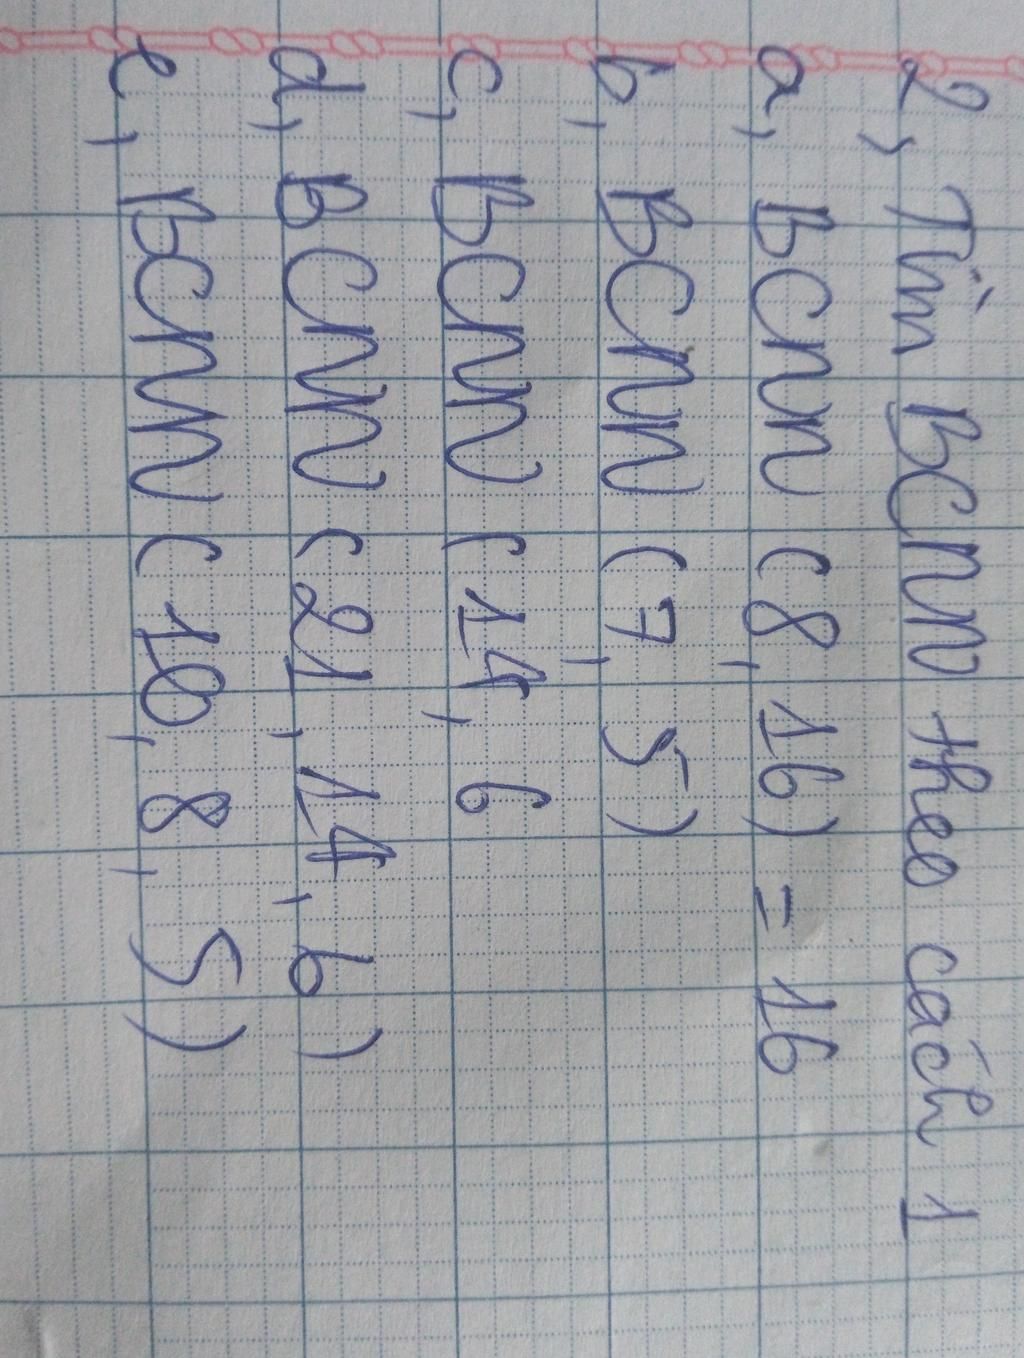 2, Tìm BCNN theo cách 1
a, BCNN (8, 16) = 16
b, BCNN (7, 5)
c, BCNN (14, 6
d, BCNN (21, 14, 6)
e, BCNN (10, 8, 5)